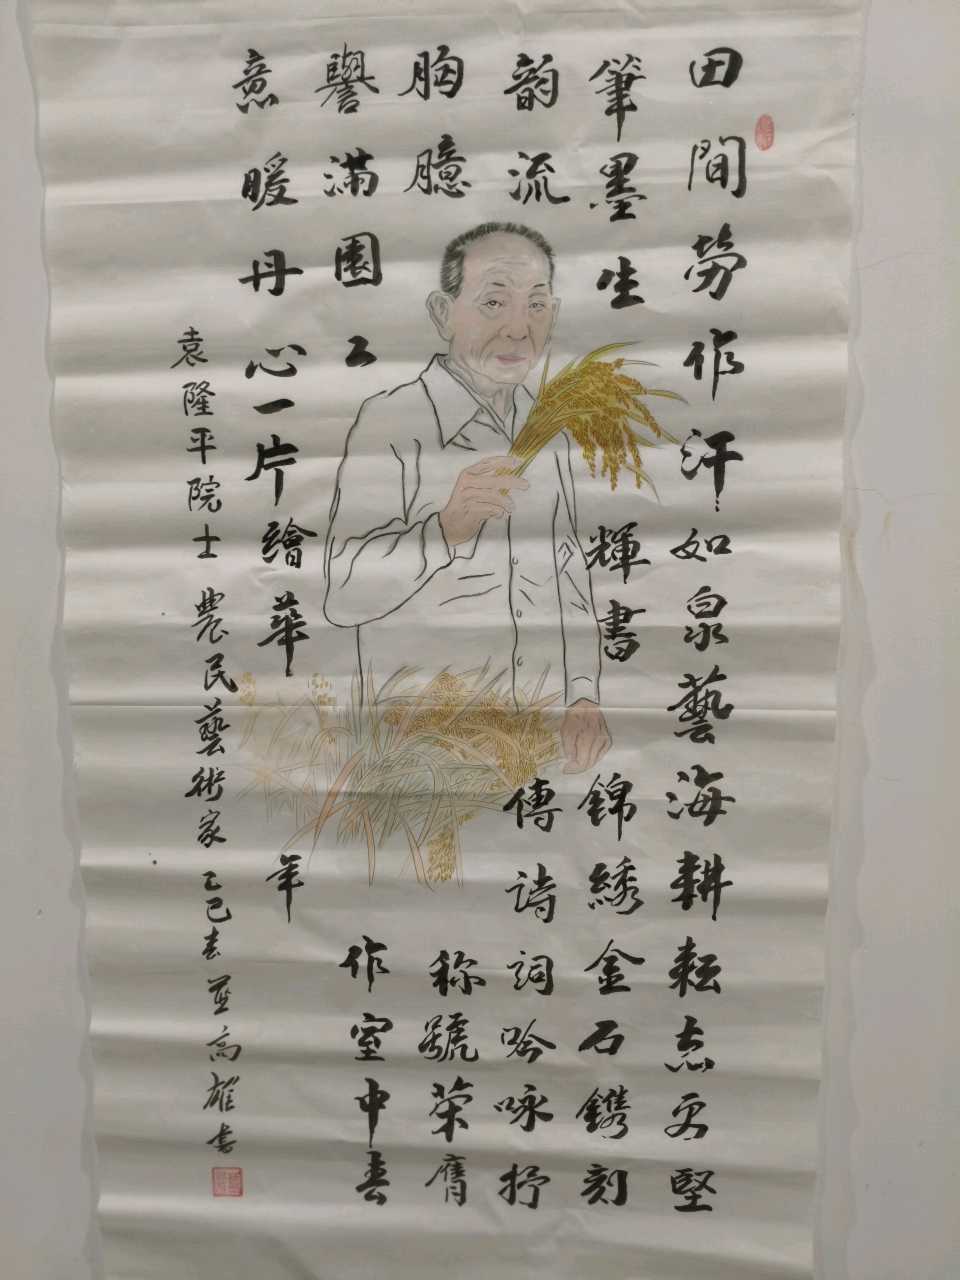 田間勞作汗如泉藝海耕耘志更堅
筆墨生輝書錦繡金石鐫刻
韵流傳詩詞吟咏抒
胸臆称號荣膺
譽滿園工作室中春
意暖丹心一片繪華年
袁隆平院士農民藝術家乙巳春並高雄书